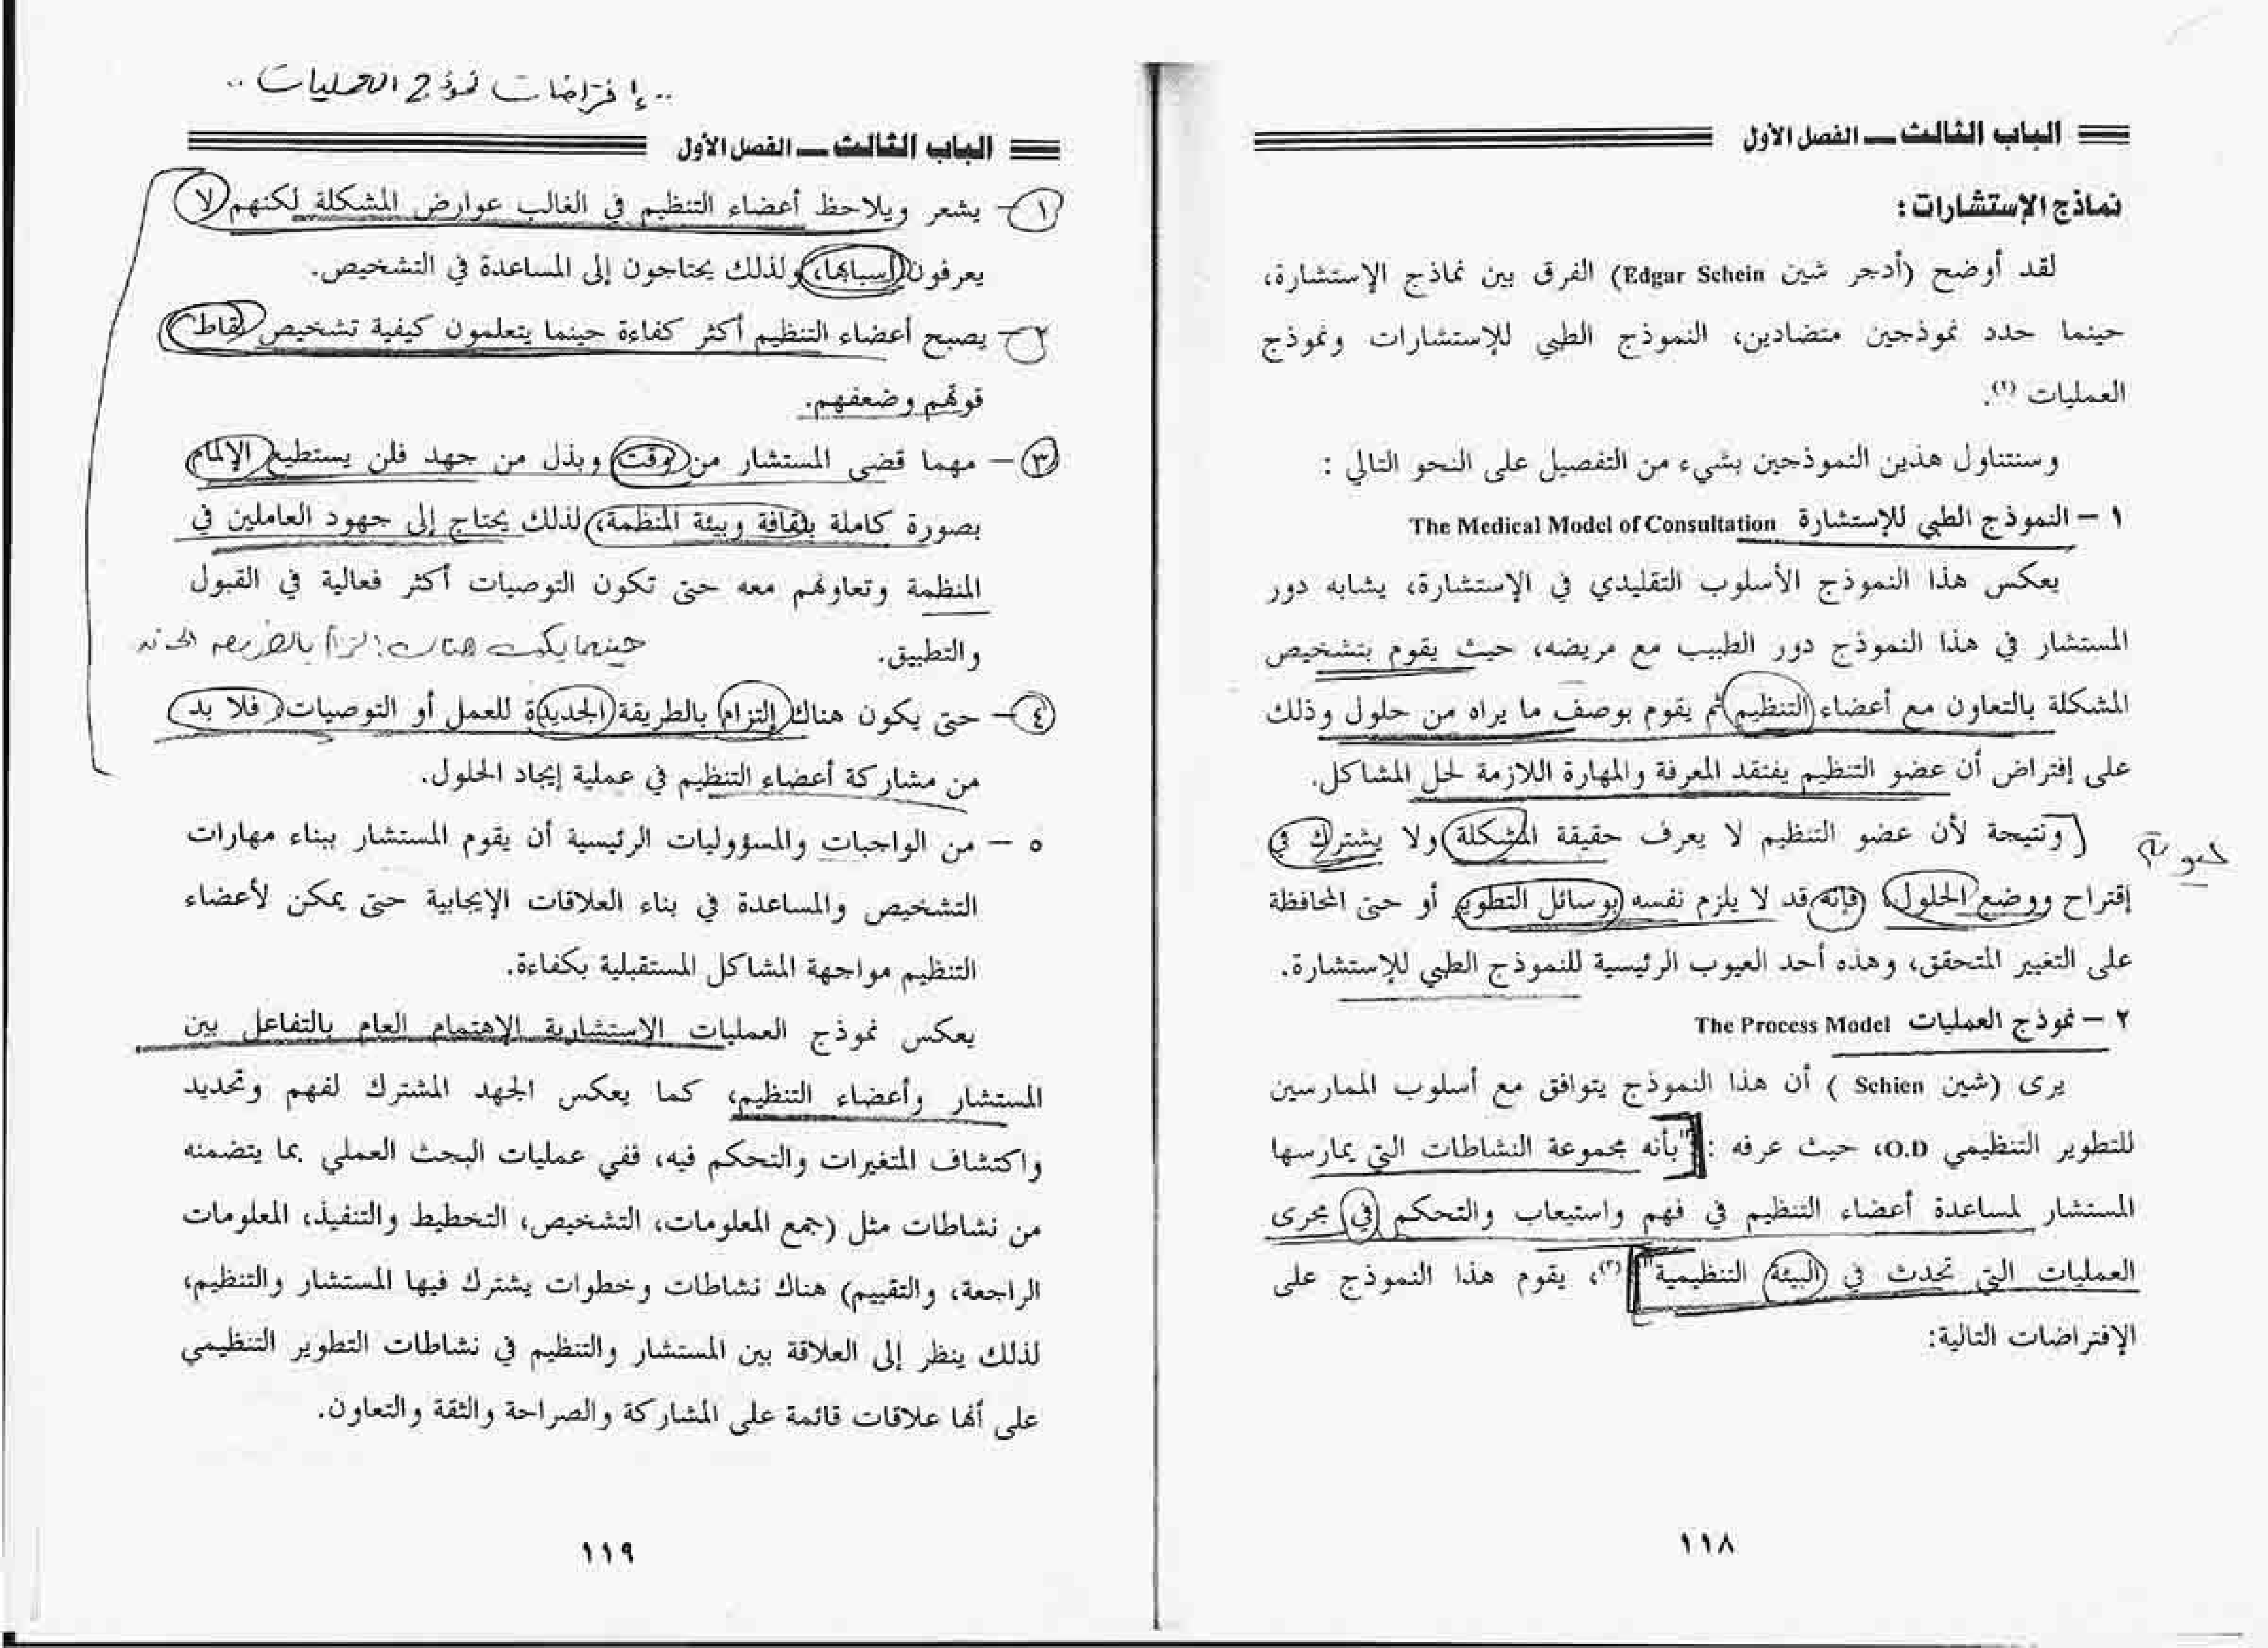 الباب الثالث ــ الفصل الأول
نماذج الإستشارات :
لقد أوضح (أدجر شين Edgar Schein) الفرق بين نماذج الإستشارة،
حينما حدد نموذجين متضادين، النموذج الطبي للإستشارات ونموذج
العمليات (٢).
وسنتناول هذين النموذجين بشيء من التفصيل على النحو التالي :
١ – النموذج الطبي للإستشارة The Medical Model of Consultation
يعكس هذا النموذج الأسلوب التقليدي في الإستشارة، يشابه دور
المستشار في هذا النموذج دور الطبيب مع مريضه، حيث يقوم بتشخيص
المشكلة بالتعاون مع أعضاء التنظيم ثم يقوم بوصف ما يراه من حلول وذلك
على إفتراض أن عضو التنظيم يفتقد المعرفة والمهارة اللازمة لحل المشاكل.
ونتيجة لأن عضو التنظيم لا يعرف حقيقة المشكلة ولا يشترك في
إقتراح ووضع الحلول، فإنه قد لا يلزم نفسه بوسائل التطوير أو حتى المحافظة
على التغيير المتحقق، وهذه أحد العيوب الرئيسية للنموذج الطبي للإستشارة.
٢ – نموذج العمليات The Process Model
يرى (شين Schien ) أن هذا النموذج يتوافق مع أسلوب الممارسين
للتطوير التنظيمي O.D، حيث عرفه : "بأنه مجموعة النشاطات التي يمارسها
المستشار لمساعدة أعضاء التنظيم في فهم واستيعاب والتحكم في مجرى
العمليات التي تحدث في البيئة التنظيمية" (٣)، يقوم هذا النموذج على
الإفتراضات التالية:
١١٨
.. إفتراضات نموذج العمليات ..
الباب الثالث ــ الفصل الأول
١ – يشعر ويلاحظ أعضاء التنظيم في الغالب عوارض المشكلة لكنهم لا
يعرفون أسبابها، ولذلك يحتاجون إلى المساعدة في التشخيص.
٢ – يصبح أعضاء التنظيم أكثر كفاءة حينما يتعلمون كيفية تشخيص نقاط
قوتهم وضعفهم.
٣ – مهما قضى المستشار من وقت وبذل من جهد فلن يستطيع الإلمام
بصورة كاملة بثقافة وبيئة المنظمة، لذلك يحتاج إلى جهود العاملين في
المنظمة وتعاونهم معه حتى تكون التوصيات أكثر فعالية في القبول
والتطبيق.
٤ – حتى يكون هناك إلتزام بالطريقة الجديدة للعمل أو التوصيات، فلا بد
من مشاركة أعضاء التنظيم في عملية إيجاد الحلول.
٥ – من الواجبات والمسؤوليات الرئيسية أن يقوم المستشار ببناء مهارات
التشخيص والمساعدة في بناء العلاقات الإيجابية حتى يمكن لأعضاء
التنظيم مواجهة المشاكل المستقبلية بكفاءة.
يعكس نموذج العمليات الإستشارية الإهتمام العام بالتفاعل بين
المستشار وأعضاء التنظيم، كما يعكس الجهد المشترك لفهم وتحديد
واكتشاف المتغيرات والتحكم فيه، ففي عمليات البحث العملي بما يتضمنه
من نشاطات مثل (جمع المعلومات، التشخيص، التخطيط والتنفيذ، المعلومات
الراجعة، والتقييم) هناك نشاطات وخطوات يشترك فيها المستشار والتنظيم،
لذلك ينظر إلى العلاقة بين المستشار والتنظيم في نشاطات التطوير التنظيمي
على أنها علاقات قائمة على المشاركة والصراحة والثقة والتعاون.
١١٩